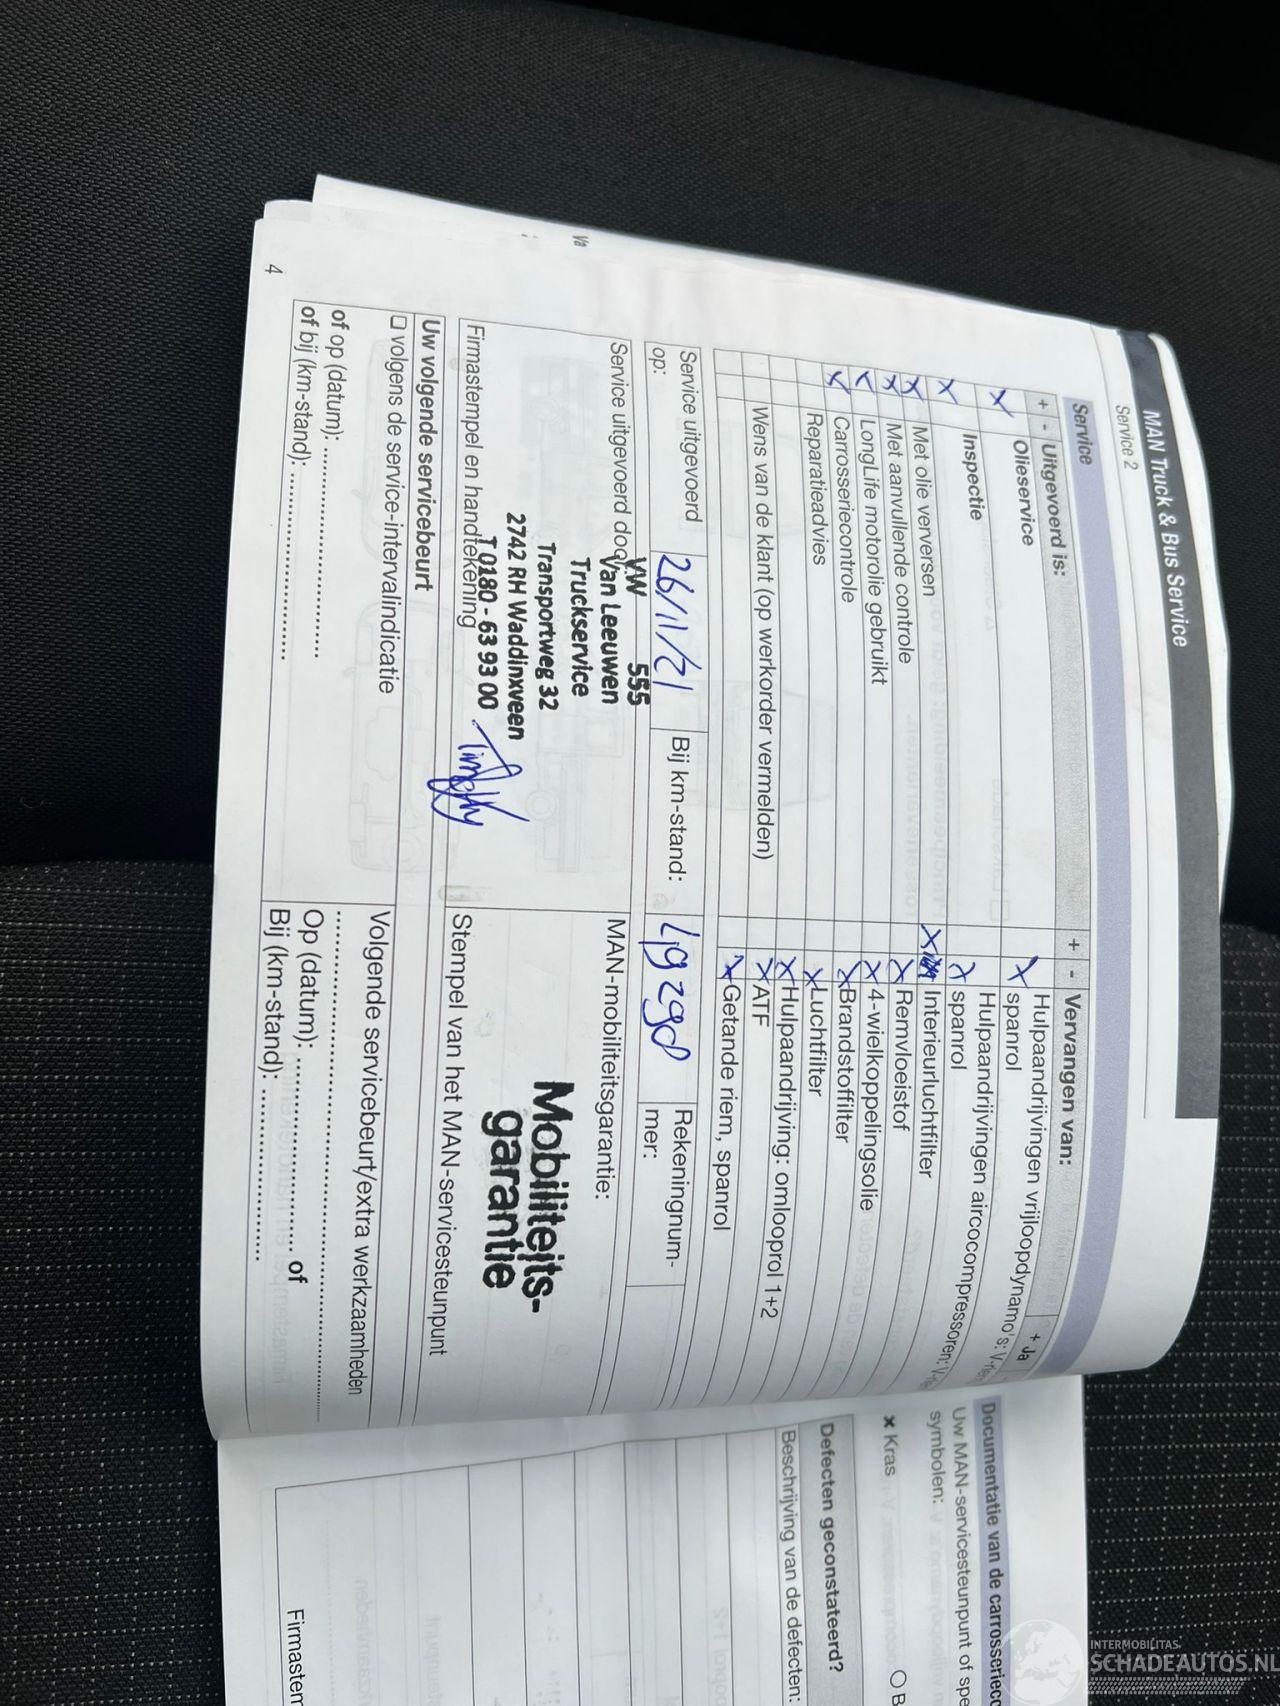 MAN Truck & Bus Service
Service 2
Service
+ - Uitgevoerd is:
x Olieservice
x Inspectie
x Met olie verversen
x Met aanvullende controle
x LongLife motorolie gebruikt
x Carrosseriecontrole
Reparatieadvies
Wens van de klant (op werkorder vermelden)
+ - Vervangen van:
+ Ja
x Hulpaandrijvingen vrijloopdynamo's:
spanrol
Hulpaandrijvingen aircocompressoren:
x spanrol
x Interieurluchtfilter
x Remvloeistof
x 4-wielkoppelingsolie
x Brandstoffilter
x Luchtfilter
x Hulpaandrijving: omlooprol 1+2
x ATF
x Getande riem, spanrol
Service uitgevoerd
op:
26/11/21
Bij km-stand:
49298
Rekeningnum-
mer:
Service uitgevoerd door:
VW 555
Van Leeuwen
Truckservice
Transportweg 32
2742 RH Waddinxveen
T 0180 - 63 93 00
Firmastempel en handtekening
MAN-mobiliteitsgarantie:
Mobiliteits-
garantie
Stempel van het MAN-servicesteunpunt
Uw volgende servicebeurt
❏ volgens de service-intervalindicatie
of op (datum): ........................................
of bij (km-stand): ...................................
Volgende servicebeurt/extra werkzaamheden
................................................................
Op (datum): ........................ of
Bij (km-stand): ................................
4
Va
Documentatie van de
Uw MAN-servicesteunpunt of
symbolen:
x Kras
Defecten geconstateerd?
Beschrijving van de defecten:
INTERMOBILITAS
SCHADEAUTOS.NL